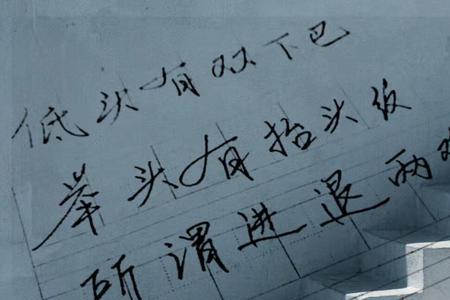 低头有双下巴
举头有抬头纹
所谓进退两